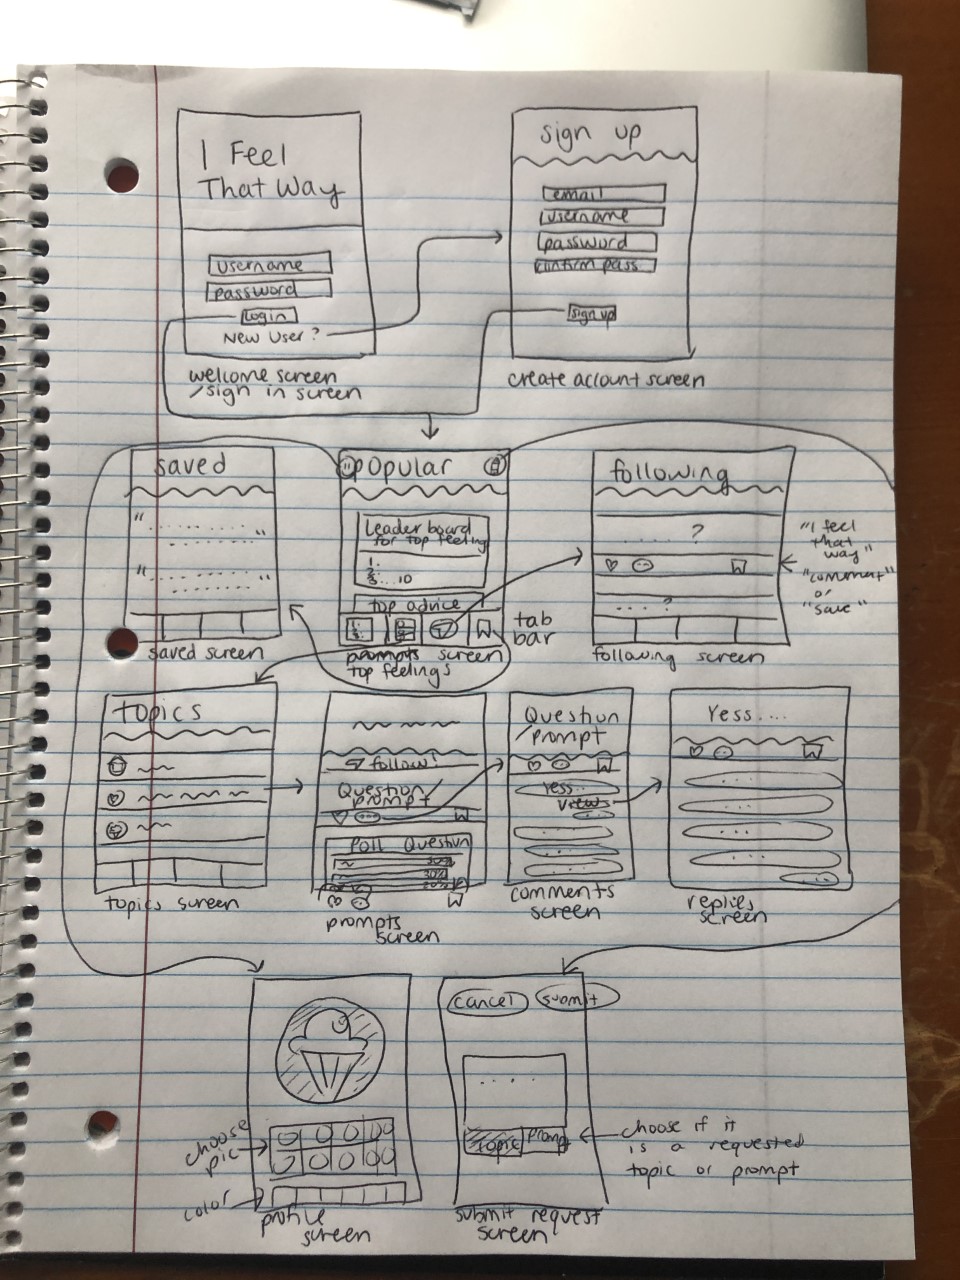 I Feel
That Way
username
password
login
New User?
welcome screen
/sign in screen
sign up
email
username
password
confirm pass
sign up
create account screen
saved
" "
" "
saved screen
popular
Leader board
for top feeling
1.
2.
3. ...10
top advice
tab
bar
prompts screen
top feelings
following
..... ?
.... ?
following screen
"I feel
that
way"
"comment"
or
"save"
topics
topics screen
follow!
Question/
prompt
Poll Question
prompts
screen
Question
/prompt
Yess...
views
comments
screen
Yess....
...
...
...
...
replies
screen
choose
pic
color
profile
screen
cancel
submit
....
topic
prompt
choose if it
is a requested
topic or prompt
submit request
screen